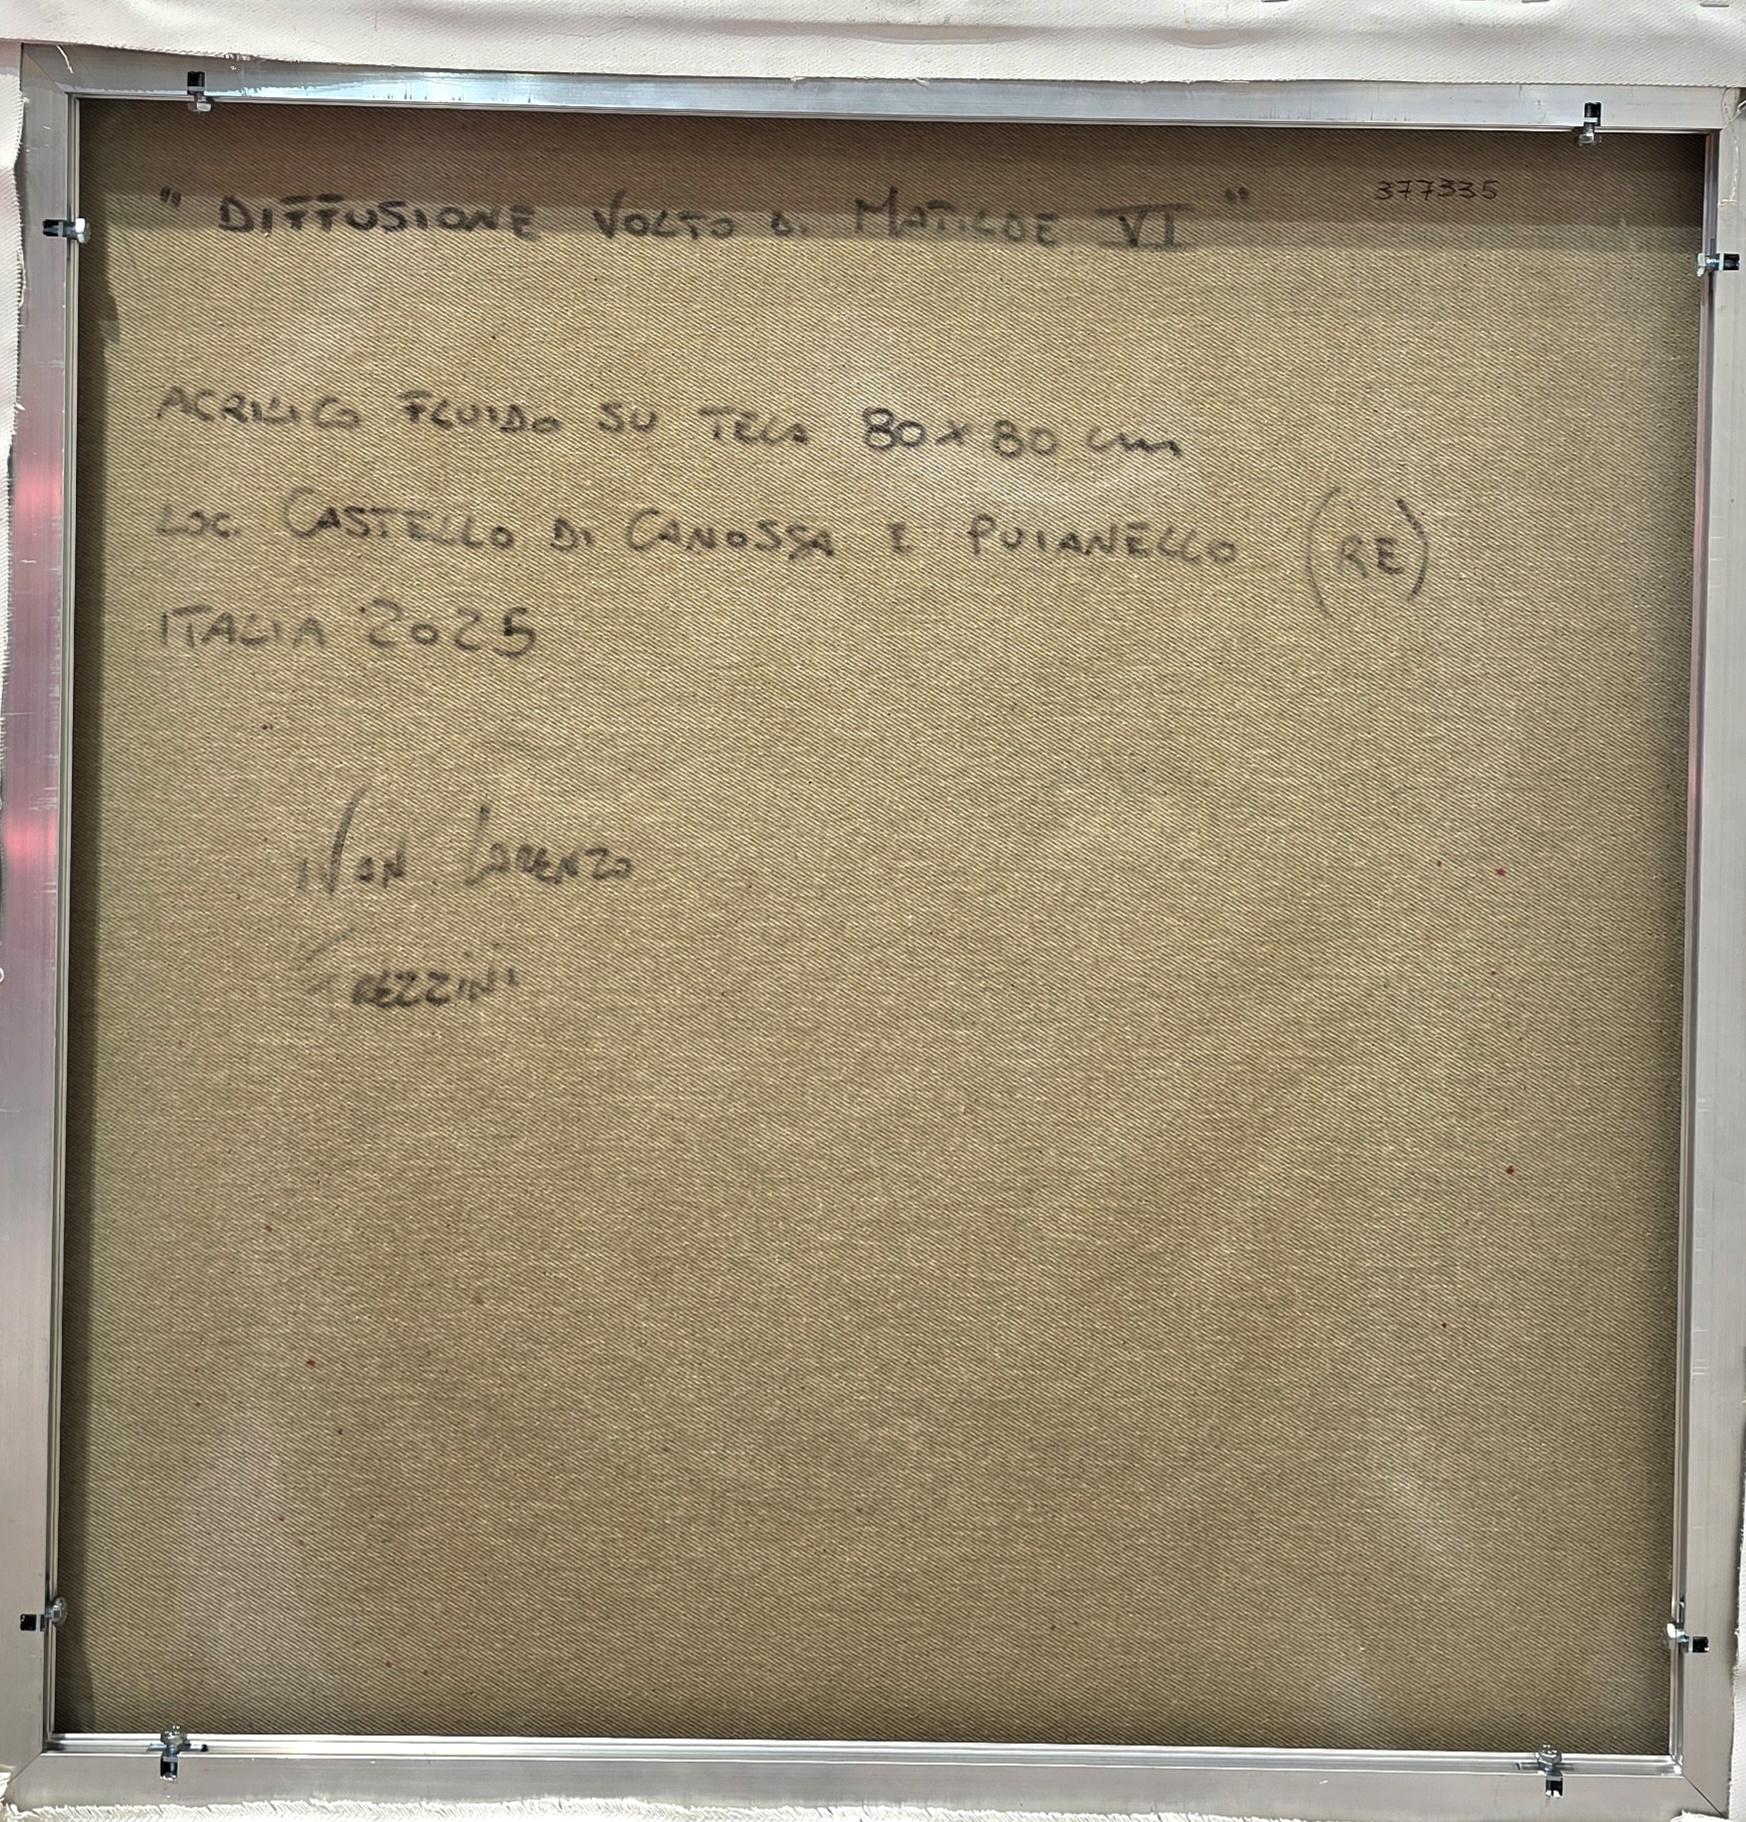 " DIFFUSIONE VOLTO DI MATILDE VI "
377335
ACRILICO FLUIDO SU TELA 80x80 cm
LOC. CASTELLO DI CANOSSA E PUIANELLO (RE)
ITALIA 2025
IVAN LORENZO
FREZZINI